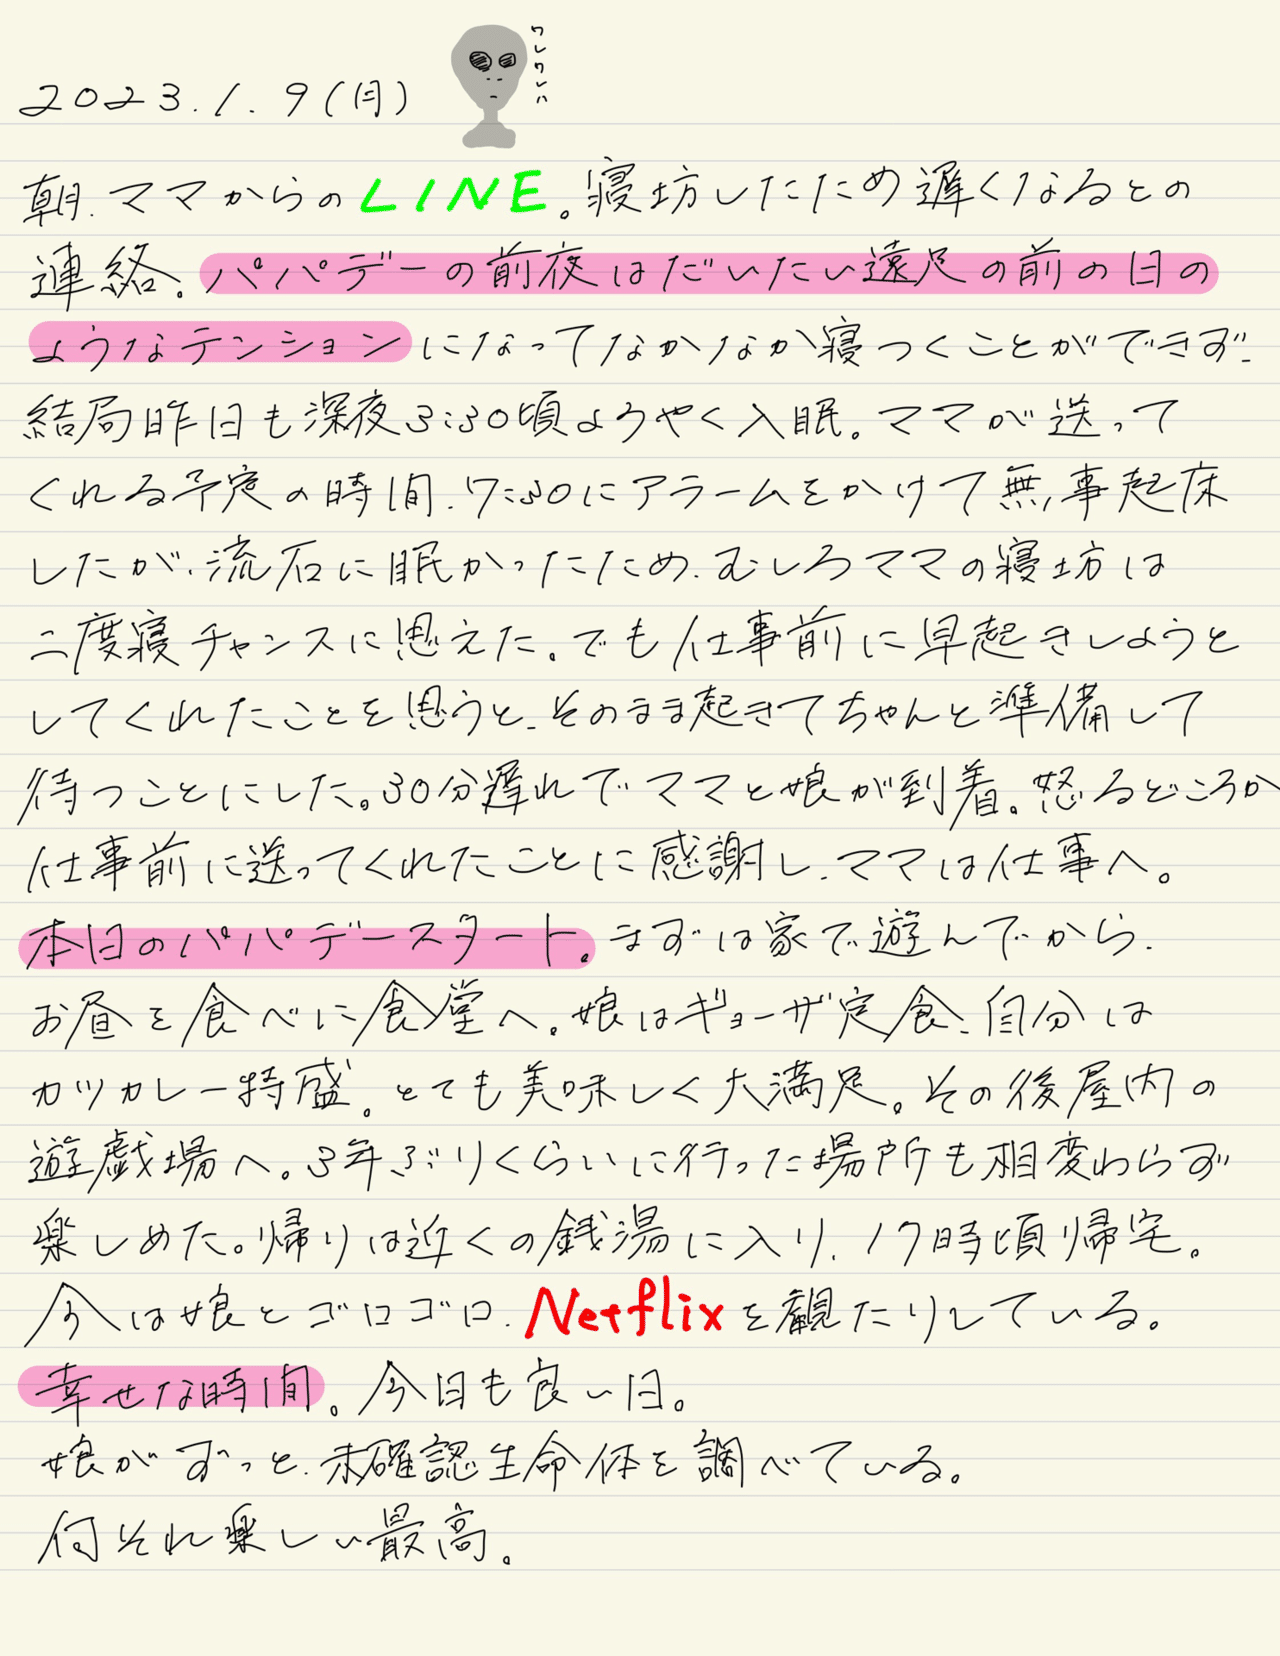 ワレワレハ
2023.1.9(月)
朝、ママからのLINE。寝坊したため遅くなるとの
連絡。パパデーの前夜はだいたい遠足の前の日の
ようなテンションになってなかなか寝つくことができず、
結局昨日も深夜3:30頃ようやく入眠。ママが送って
くれる予定の時間、7:30にアラームをかけて無事起床
したが、流石に眠かったため、むしろママの寝坊は
二度寝チャンスに思えた。でも仕事前に早起きしようと
してくれたことを思うと、そのまま起きてちゃんと準備して
待つことにした。30分遅れでママと娘が到着。怒るどころか
仕事前に送ってくれたことに感謝し、ママは仕事へ。
本日のパパデースタート。まずは家で遊んでから、
お昼を食べに食堂へ。娘はギョーザ定食、自分は
カツカレー特盛。とても美味しく大満足。その後屋内の
遊戯場へ。3年ぶりくらいに行った場所も相変わらず
楽しめた。帰りは近くの銭湯に入り、17時頃帰宅。
今は娘とゴロゴロ、Netflixを観たりしている。
幸せな時間。今日も良い日。
娘がずっと、未確認生命体を調べている。
何それ楽しい最高。